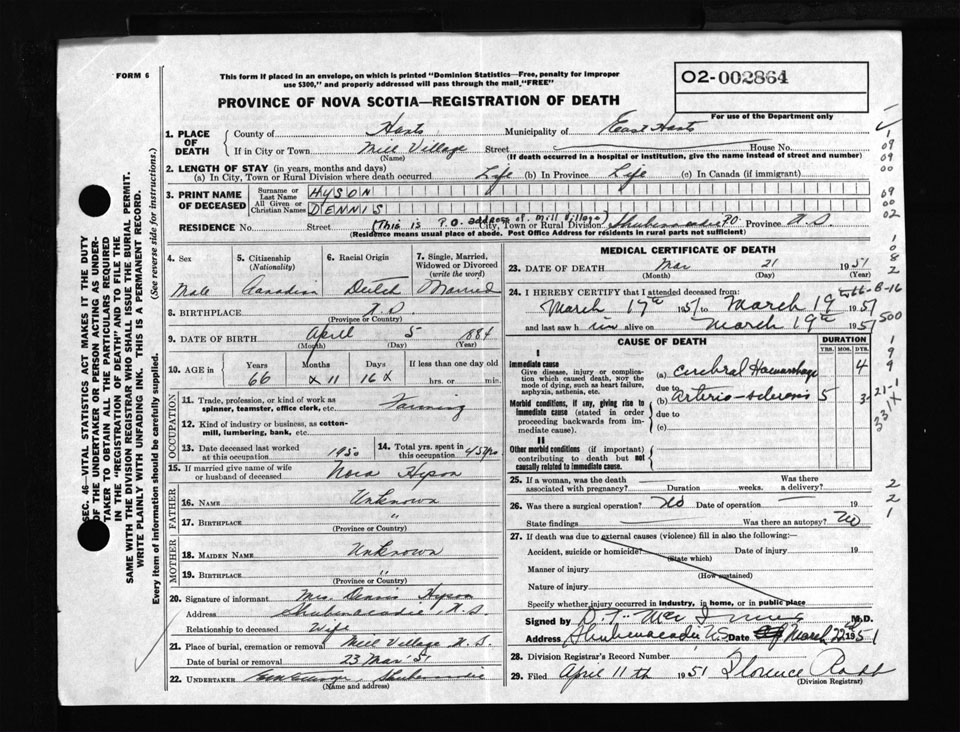 FORM 6
This form if placed in an envelope, on which is printed "Dominion Statistics—Free, penalty for improper
use $300," and properly addressed will pass through the mail "FREE"
PROVINCE OF NOVA SCOTIA—REGISTRATION OF DEATH
O2-002864
For use of the Department only
1. PLACE OF DEATH
County of Hants Municipality of East Hants
If in City or Town Mill Village Street House No.
(Name) (If death occurred in a hospital or institution, give the name instead of street and number)
2. LENGTH OF STAY (in years, months and days)
(a) In City, Town or Rural Division where death occurred Life (b) In Province Life (c) In Canada (if immigrant)
3. PRINT NAME OF DECEASED
Surname or Last Name HYSON
All Given or Christian Names DENNIS
(This is P.O. address of Mill Village)
RESIDENCE No. Street City, Town or Rural Division Shubenacadie P.O. Province N.S.
(Residence means usual place of abode. Post Office Address for residents in rural parts not sufficient)
4. Sex
Male
5. Citizenship (Nationality)
Canadian
6. Racial Origin
Dutch
7. Single, Married, Widowed or Divorced (write the word)
Married
8. BIRTHPLACE N.S.
(Province or Country)
9. DATE OF BIRTH April 5 1884
(Month) (Day) (Year)
10. AGE in Years Months Days If less than one day old
66 x 11 16 x hrs. or min.
OCCUPATION
11. Trade, profession, or kind of work as spinner, teamster, office clerk, etc. Farming
12. Kind of industry or business, as cotton-mill, lumbering, bank, etc.
13. Date deceased last worked at this occupation 1950
14. Total yrs. spent in this occupation 45 yrs
15. If married give name of wife or husband of deceased Nora Hyson
FATHER
16. Name Unknown
17. Birthplace "
(Province or Country)
MOTHER
18. Maiden Name Unknown
19. Birthplace "
(Province or Country)
20. Signature of informant Mrs. Dennis Hyson
Address Shubenacadie, N.S.
Relationship to deceased Wife
21. Place of burial, cremation or removal Mill Village N.S.
Date of burial or removal 23 Mar 51
22. Undertaker Shubenacadie
(Name and address)
MEDICAL CERTIFICATE OF DEATH
23. DATE OF DEATH Mar 21 1951
(Month) (Day) (Year)
24. I HEREBY CERTIFY that I attended deceased from:
March 17th 1951 to March 19 1951
and last saw him alive on March 19th 1951
CAUSE OF DEATH
DURATION
YRS. MOS. DYS.
I
Immediate cause
Give disease, injury or complication which caused death, NOT the mode of dying, such as heart failure, asphyxia, asthenia, etc.
(a) Cerebral Haemorrhage 4
due to
Morbid conditions, if any, giving rise to immediate cause (stated in order proceeding backwards from immediate cause).
(b) Arterio-sclerosis 5 3
due to
(c)
II
Other morbid conditions (if important) contributing to death but not causally related to immediate cause.
25. If a woman, was the death associated with pregnancy? Duration weeks. Was there a delivery?
26. Was there a surgical operation? No Date of operation 19
State findings Was there an autopsy? No
27. If death was due to external causes (violence) fill in also the following:—
Accident, suicide or homicide? Date of injury 19
(State which)
Manner of injury
(How sustained)
Nature of injury
Specify whether injury occurred in industry, in home, or in public place
Signed by D. F. M.D.
Address Shubenacadie N.S Date March 22nd 1951
28. Division Registrar's Record Number
29. Filed April 11th 1951 Florence
(Division Registrar)
SEC. 46—VITAL STATISTICS ACT MAKES IT THE DUTY
OF THE UNDERTAKER OR PERSON ACTING AS UNDER-
TAKER TO OBTAIN ALL THE PARTICULARS REQUIRED
IN THE "REGISTRATION OF DEATH" AND TO FILE THE
SAME WITH THE DIVISION REGISTRAR WHO SHALL ISSUE THE BURIAL PERMIT.
WRITE PLAINLY WITH UNFADING INK. THIS IS A PERMANENT RECORD.
Every item of information should be carefully supplied. (See reverse side for instructions.)
1
09
09
00
09
00
02
1
0
8
2
B-16
500
1
9
9
21-1
331X
2
2
1